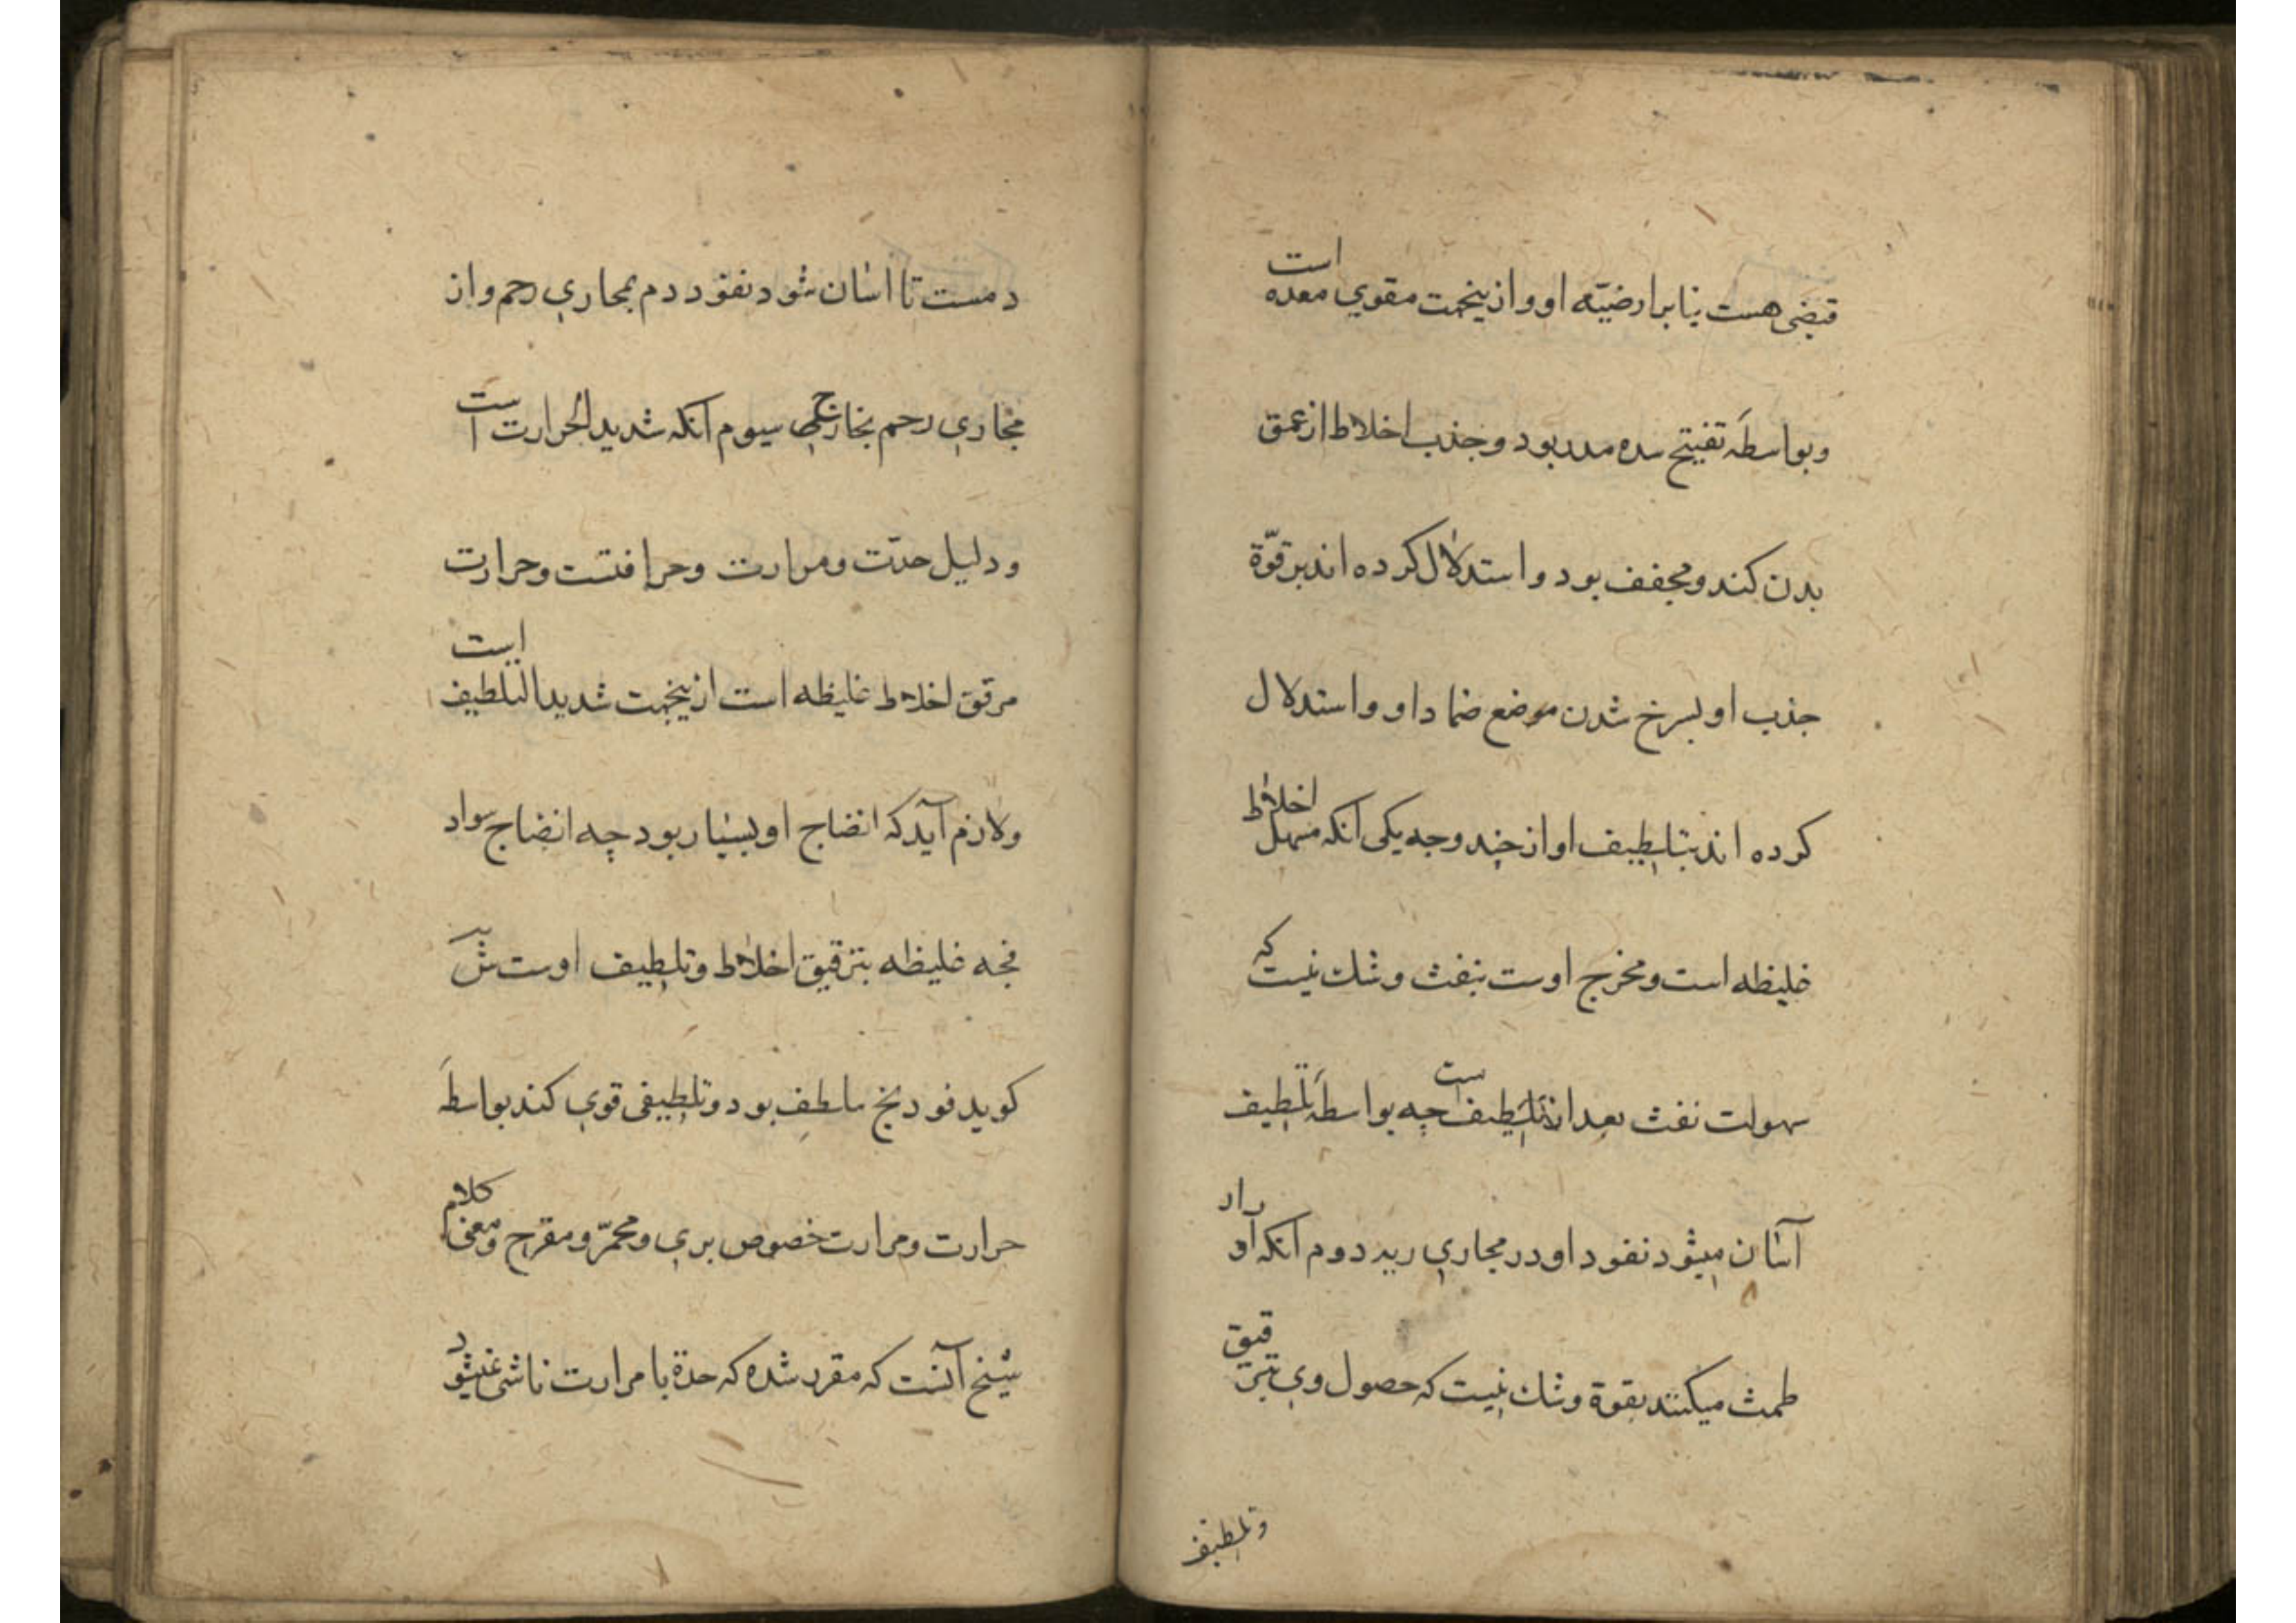 قبضی هست بنابر ارضیّه او و ازینجهت مقوی معده است
و بواسطهٔ تفتیح سده مدر بود و جذب اخلاط از عمق
بدن کند و مجفف بود و استدلال کرده اند بر قوّة
جذب او بسرخ شدن موضع ضماد او و استدلال
کرده اند بتلطیف او از چند وجه یکی آنکه مسهل اخلاط
غلیظه است و مخرج اوست بنفث و شك نیست که
سهولت نفث بعد از تلطیف است چه بواسطهٔ تلطیف
آسان میشود نفود او در مجاری ریه دوم آنکه ادرار
طمث میکنند بقوة و شك نیست که حصول وی بترقیق
و تلطیف
دمست تا اسان شود نفود دم بمجاری رحم و از
مجاری رحم بخارج سیوم آنکه شدید الحرارت است
و دلیل حدّت و مرارت و حرافتست و حرارت
مرقق اخلاط غلیظه است ازینجهت شدید التلطیف است
و لازم آید که انضاج او بسیار بود چه انضاج مواد
فجه غلیظه بترقیق اخلاط و تلطیف اوست
کوید فودنج ملطف بود و تلطیفی قوی کند بواسطهٔ
حرارت و مرارت خصوص بری و محمّر و مقرح و معنی کلام
شیخ آنست که مقرر شده که حدة با مرارت ناشی نمیشود